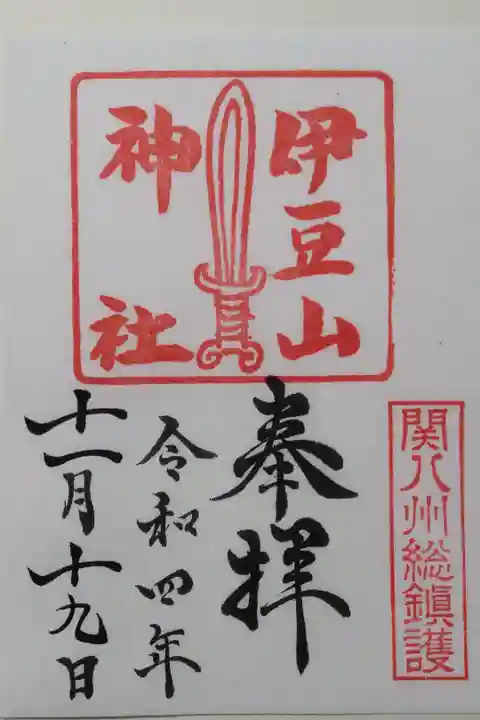 伊豆山
神社
関八州総鎮護
奉拝
令和四年
十一月十九日